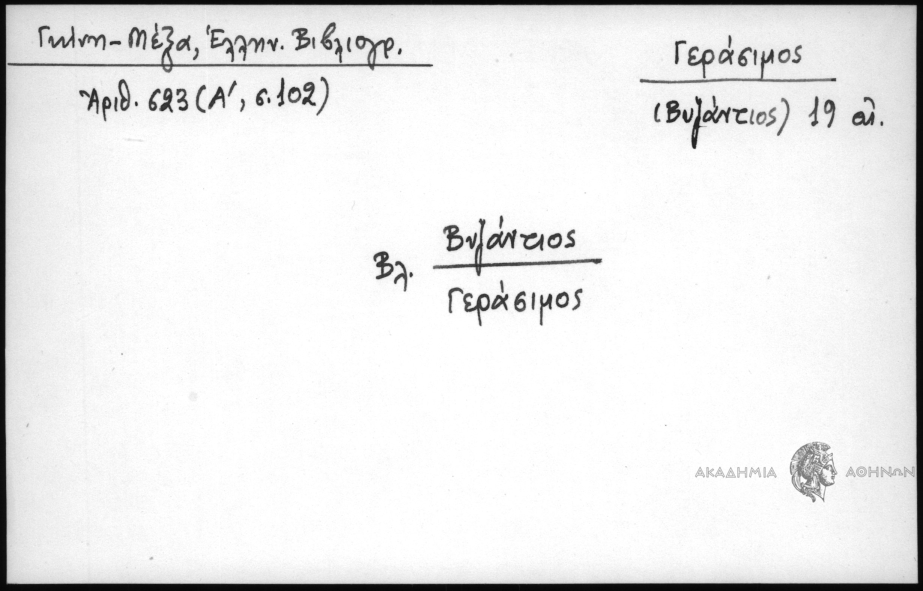 Γκίνη-Μέξα, Ἑλλην. Βιβλιογρ.
Ἀριθ. 623 (Α', σ. 102)
Γεράσιμος
(Βυζάντιος) 19 αἰ.
Βλ. Βυζάντιος
Γεράσιμος
ΑΚΑΔΗΜΙΑ ΑΘΗΝΩΝ